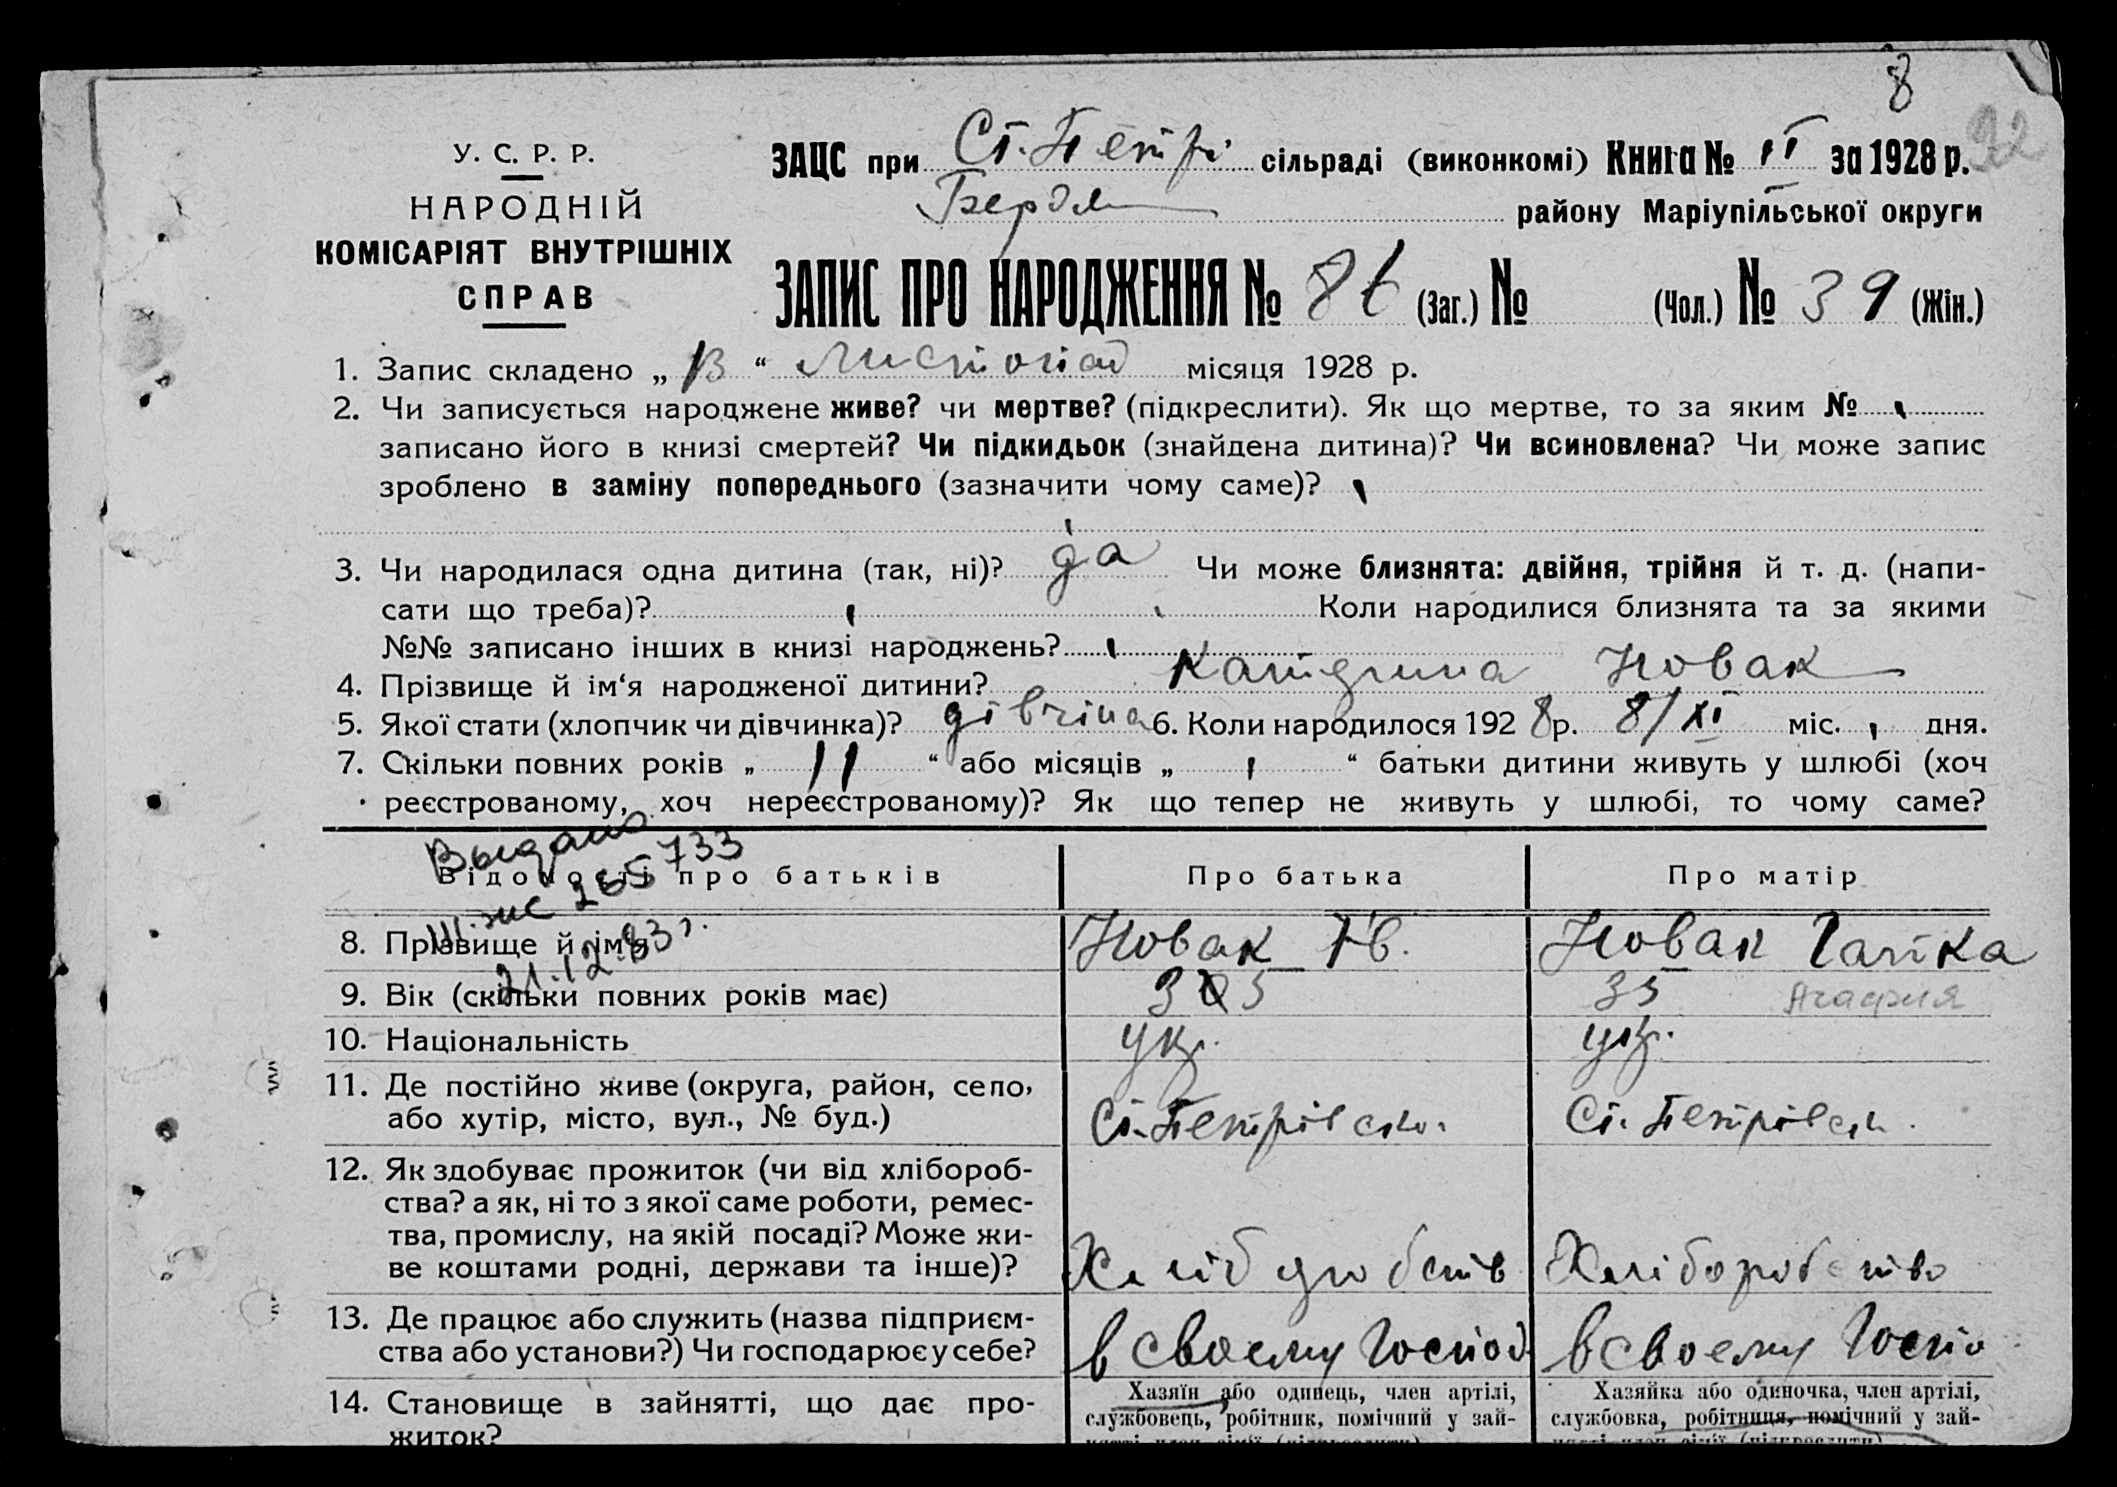 8
92
У. С. Р. Р.
НАРОДНІЙ
КОМІСАРІЯТ ВНУТРІШНІХ
СПРАВ
ЗАЦС при Ст. Петрі сільраді (виконкомі) Книга № II за 1928 р.
Бердян району Маріупільської округи
ЗАПИС ПРО НАРОДЖЕННЯ № 86 (Заг.) № (Чол.) № 39 (Жін.)
1. Запис складено „ 13 “ Листопад місяця 1928 р.
2. Чи записується народжене живе? чи мертве? (підкреслити). Як що мертве, то за яким №
записано його в книзі смертей? Чи підкидьок (знайдена дитина)? Чи всиновлена? Чи може запис
зроблено в заміну попереднього (зазначити чому саме)?
3. Чи народилася одна дитина (так, ні)? да Чи може близнята: двійня, трійня й т. д. (напи-
сати що треба)? Коли народилися близнята та за якими
№№ записано інших в книзі народжень?
4. Прізвище й ім‘я народженої дитини? Катерина Новак
5. Якої стати (хлопчик чи дівчинка)? дівчина 6. Коли народилося 1928 р. 8/XI міс. дня.
7. Скільки повних років „ 11 “ або місяців „ “ батьки дитини живуть у шлюбі (хоч
реєстрованому, хоч нереєстрованому)? Як що тепер не живуть у шлюбі, то чому саме?
Выдано
III-жс 265733
21.12.83г.
Відомості про батьків Про батька Про матір
8. Прізвище й ім‘я Новак Ів. Новак Гапка
9. Вік (скільки повних років має) 305 35 Агафия
10. Національність укр. укр.
11. Де постійно живе (округа, район, село,
або хутір, місто, вул., № буд.) Ст. Петрівськ. Ст. Петрівськ.
12. Як здобуває прожиток (чи від хлібороб-
ства? а як, ні то з якої саме роботи, ремес-
тва, промислу, на якій посаді? Може жи-
ве коштами родні, держави та інше)? Хліборобств Хліборобство
13. Де працює або служить (назва підприєм-
ства або установи?) Чи господарює у себе? в своему Господ в своему Госпо
14. Становище в зайнятті, що дає про-
житок?
Хазяїн або одинець, член артілі,
службовець, робітник, помічний у зай-
Хазяйка або одиночка, член артілі,
службовка, робітниця, помічний у зай-